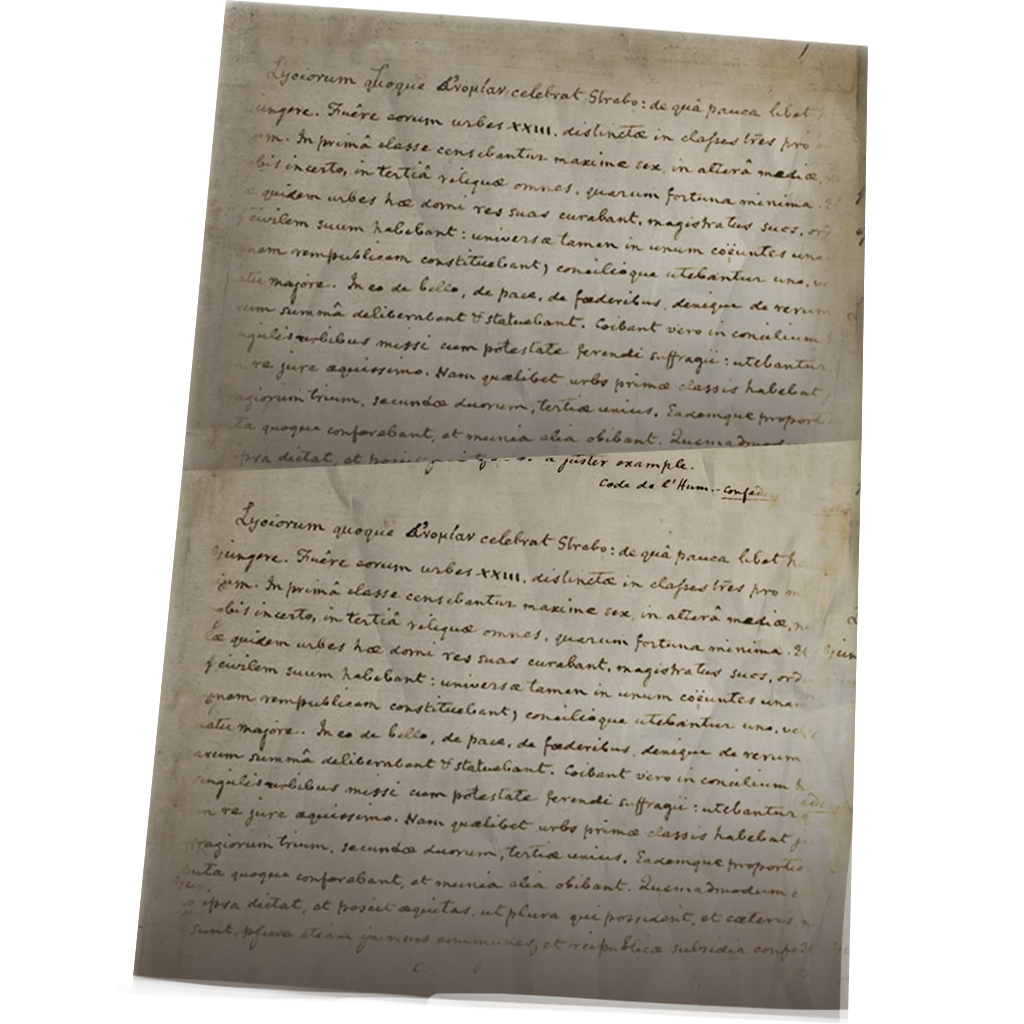 Lyciorum quoque ἔυνομίαν celebrat Strabo: de quâ pauca libet
ungere. Fuêre eorum urbes XXIII, distinctæ in classes tres pro
um. In primâ classe censebantur maxime sex, in alterâ mediæ,
bis incerto, in tertiâ reliquæ omnes, quarum fortuna minima.
quidem urbes hæ domi res suas curabant, magistratus suos, ord
civilem suum habebant: universæ tamen in unum coëuntes una
nam rempublicam constituebant, concilioque utebantur uno, ve
atu majore. In eo de bello, de pace, de fœderibus, denique de rerum
um summâ deliberabant & statuebant. Coibant vero in concilium
ngulis urbibus missi cum potestate ferendi suffragii: utebantur
re jure æquissimo. Nam quælibet urbs primæ classis habebat
agiorum trium, secundæ duorum, tertiæ unius. Eademque proport
ta quoque conferebant, et munia alia obibant. Quemadmodu
psa dictat, et poscit a juster example.
Code de l'Hum.-confed
Lyciorum quoque ἔυνομίαν celebrat Strabo: de quâ pauca libet h
jungere. Fuêre eorum urbes XXIII, distinctæ in classes tres pro m
um. In primâ classe censebantur maxime sex, in alterâ mediæ,
obis incerto, in tertiâ reliquæ omnes, quarum fortuna minima. Et
æ quidem urbes hæ domi res suas curabant, magistratus suos, ord
civilem suum habebant: universæ tamen in unum coëuntes unam
nam rempublicam constituebant, concilioque utebantur uno, vel
atu majore. In eo de bello, de pace, de fœderibus, denique de rerum
arum summâ deliberabant & statuebant. Coibant vero in concilium h
ingulis urbibus missi cum potestate ferendi suffragii: utebantur
in re jure æquissimo. Nam quælibet urbs primæ classis habebat j
ragiorum trium, secundæ duorum, tertiæ unius. Eademque proportio
uta quoque conferebant, et munia alia obibant. Quemadmodum e
ipsa dictat, et poscit æquitas, ut plura qui possident, et cæteris
sunt, plura etiam in usus communes, et reipublicæ subsidia confe